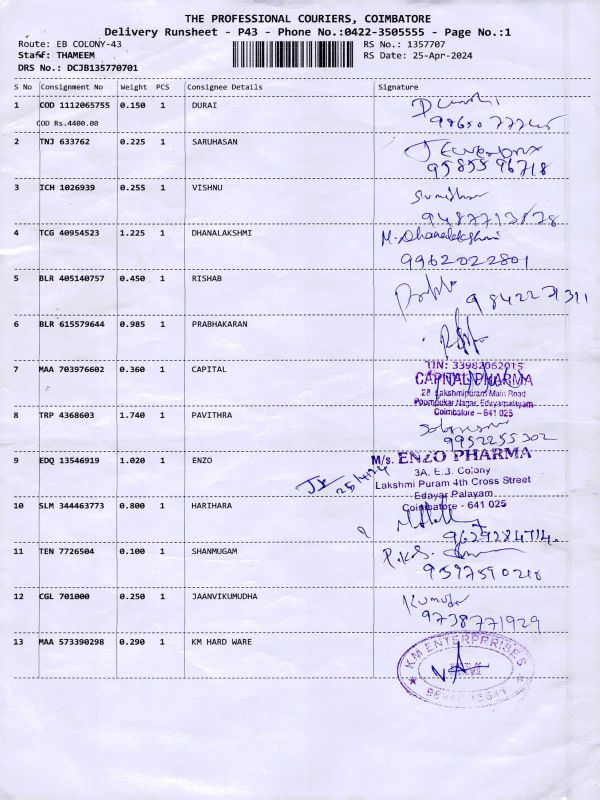 THE PROFESSIONAL COURIERS, COIMBATORE
Delivery Runsheet - P43 - Phone No.:0422-3505555 - Page No.:1
Route: EB COLONY-43 RS No.: 1357707
Staff: THAMEEM RS Date: 25-Apr-2024
DRS No.: DCJB135770701
S No Consignment No Weight PCS Consignee Details Signature
1 COD 1112065755 0.150 1 DURAI
COD Rs.4400.00
2 TNJ 633762 0.225 1 SARUHASAN
9585596718
3 ICH 1026939 0.255 1 VISHNU
4 TCG 40954523 1.225 1 DHANALAKSHMI M. Dhanalakshmi
9962022801
5 BLR 405140757 0.450 1 RISHAB
9842231311
6 BLR 615579644 0.985 1 PRABHAKARAN
7 MAA 703976602 0.360 1 CAPITAL TIN: 33982062015
CAPITAL PHARMA
28 Lakshmipuram Main Road
Edayarpalayam
Coimbatore - 641 025
8 TRP 4368603 1.740 1 PAVITHRA
9952255302
9 EDQ 13546919 1.020 1 ENZO M/s. ENZO PHARMA
25/4/24 3A, E.J. Colony
Lakshmi Puram 4th Cross Street
Edayar Palayam
Coimbatore - 641 025
10 SLM 344463773 0.800 1 HARIHARA
11 TEN 7726504 0.100 1 SHANMUGAM P.K.S.
9597590210
12 CGL 701000 0.250 1 JAANVIKUMUDHA Kumudha
9738771929
13 MAA 573390298 0.290 1 KM HARD WARE KM ENTERPPRISES